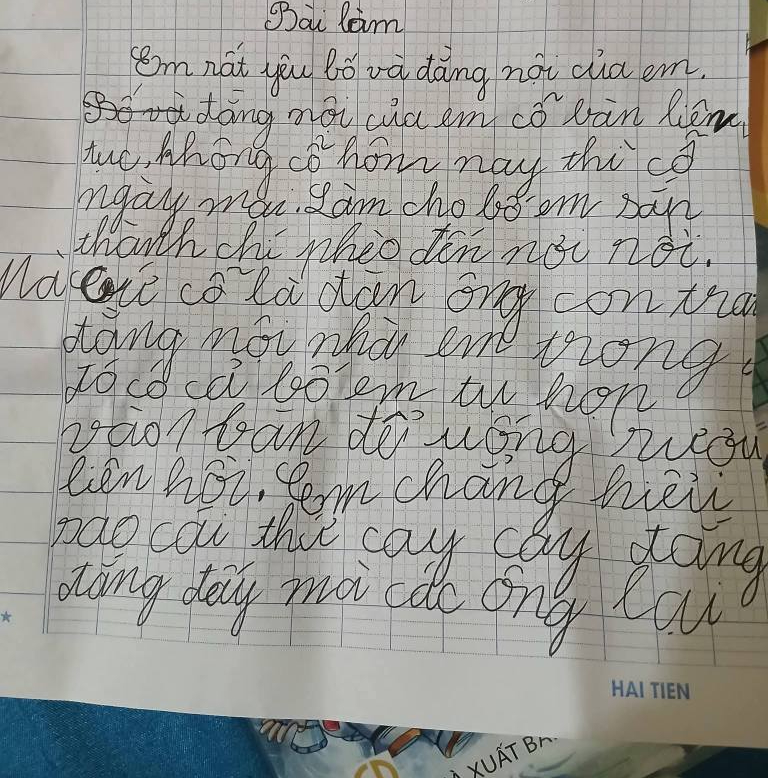 Bài làm
Em rất yêu bố và đằng nội của em.
Bố và đằng nội của em cỗ bàn liên
tục, không cỗ hôm nay thì cỗ
ngày mai. Làm cho bố em sắn
thành chí phèo đến nơi rồi.
Mà cứ cỗ là đàn ông con trai
đằng nội nhà em trong
đó có cả bố em tụ họp
vào 1 bàn để uống rượu
liên hồi. Em chẳng hiểu
sao cái thứ cay cay đắng
đắng đấy mà các ông lại
HAI TIEN
XUẤT BẢ